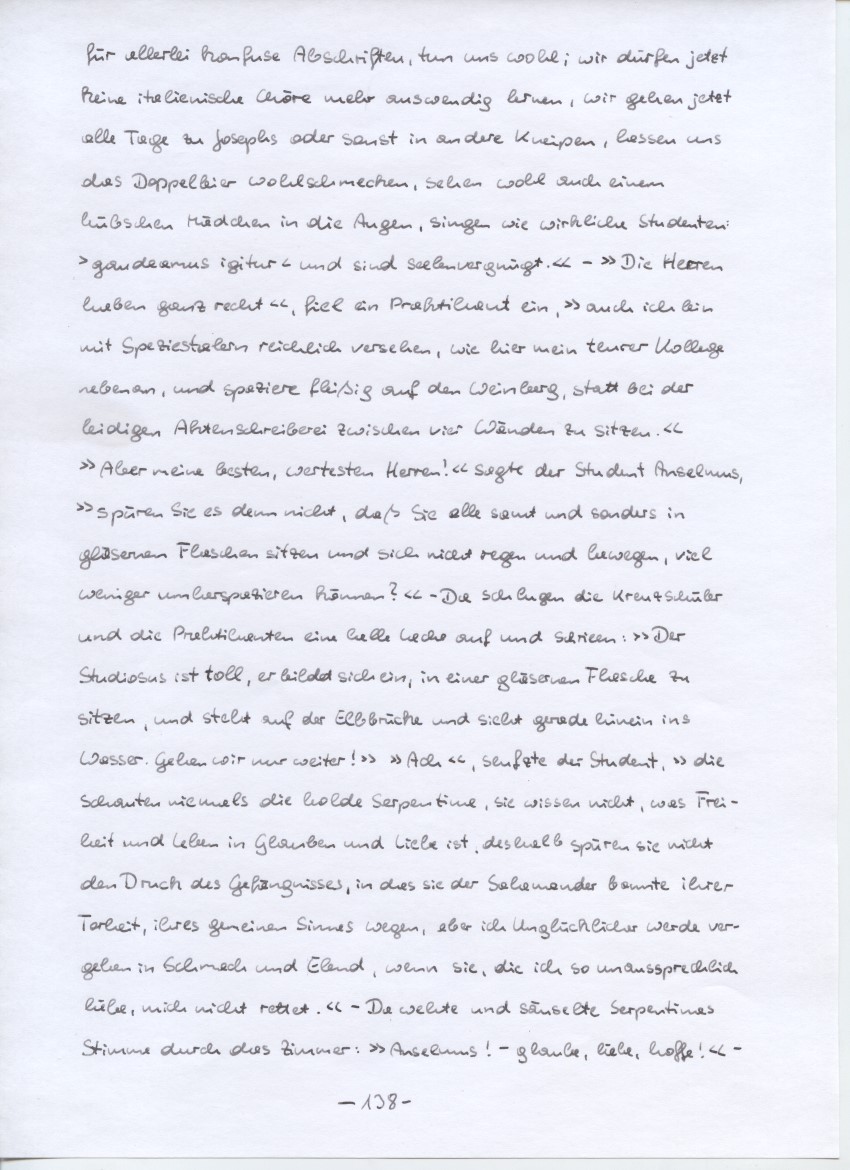 für allerlei konfuse Abschriften, tun uns wohl; wir dürfen jetzt
keine italienische Chöre mehr auswendig lernen, wir gehen jetzt
alle Tage zu Josephs oder sonst in andere Kneipen, lassen uns
das Doppelbier wohlschmecken, sehen wohl auch einem
hübschen Mädchen in die Augen, singen wie wirkliche Studenten:
>gaudeamus igitur< und sind seelenvergnügt.<< – >>Die Herren
haben ganz recht<<, fiel ein Praktikant ein, >>auch ich bin
mit Speziestalern reichlich versehen, wie hier mein teurer Kollege
nebenan, und spaziere fleißig auf den Weinberg, statt bei der
leidigen Aktenschreiberei zwischen vier Wänden zu sitzen.<<
>>Aber meine besten, wertesten Herren!<< sagte der Student Anselmus,
>>spüren Sie es denn nicht, daß Sie alle samt und sonders in
gläsernen Flaschen sitzen und sich nicht regen und bewegen, viel
weniger umherspazieren können?<< – Da schlugen die Kreuzschüler
und die Praktikanten eine helle Lache auf und schrieen: >>Der
Studiosus ist toll, er bildet sich ein, in einer gläsernen Flasche zu
sitzen, und steht auf der Elbbrücke und sieht gerade hinein ins
Wasser. Gehen wir nur weiter!>> >>Ach<<, seufzte der Student, >>die
schauten niemals die holde Serpentina, sie wissen nicht, was Frei-
heit und Leben in Glauben und Liebe ist, deshalb spüren sie nicht
den Druck des Gefängnisses, in das sie der Salamander bannte ihrer
Torheit, ihres gemeinen Sinnes wegen, aber ich Unglücklicher werde ver-
gehen in Schmach und Elend, wenn sie, die ich so unaussprechlich
liebe, mich nicht rettet.<< – Da wehte und säuselte Serpentinas
Stimme durch das Zimmer: >>Anselmus! – glaube, liebe, hoffe!<< –
– 138 –